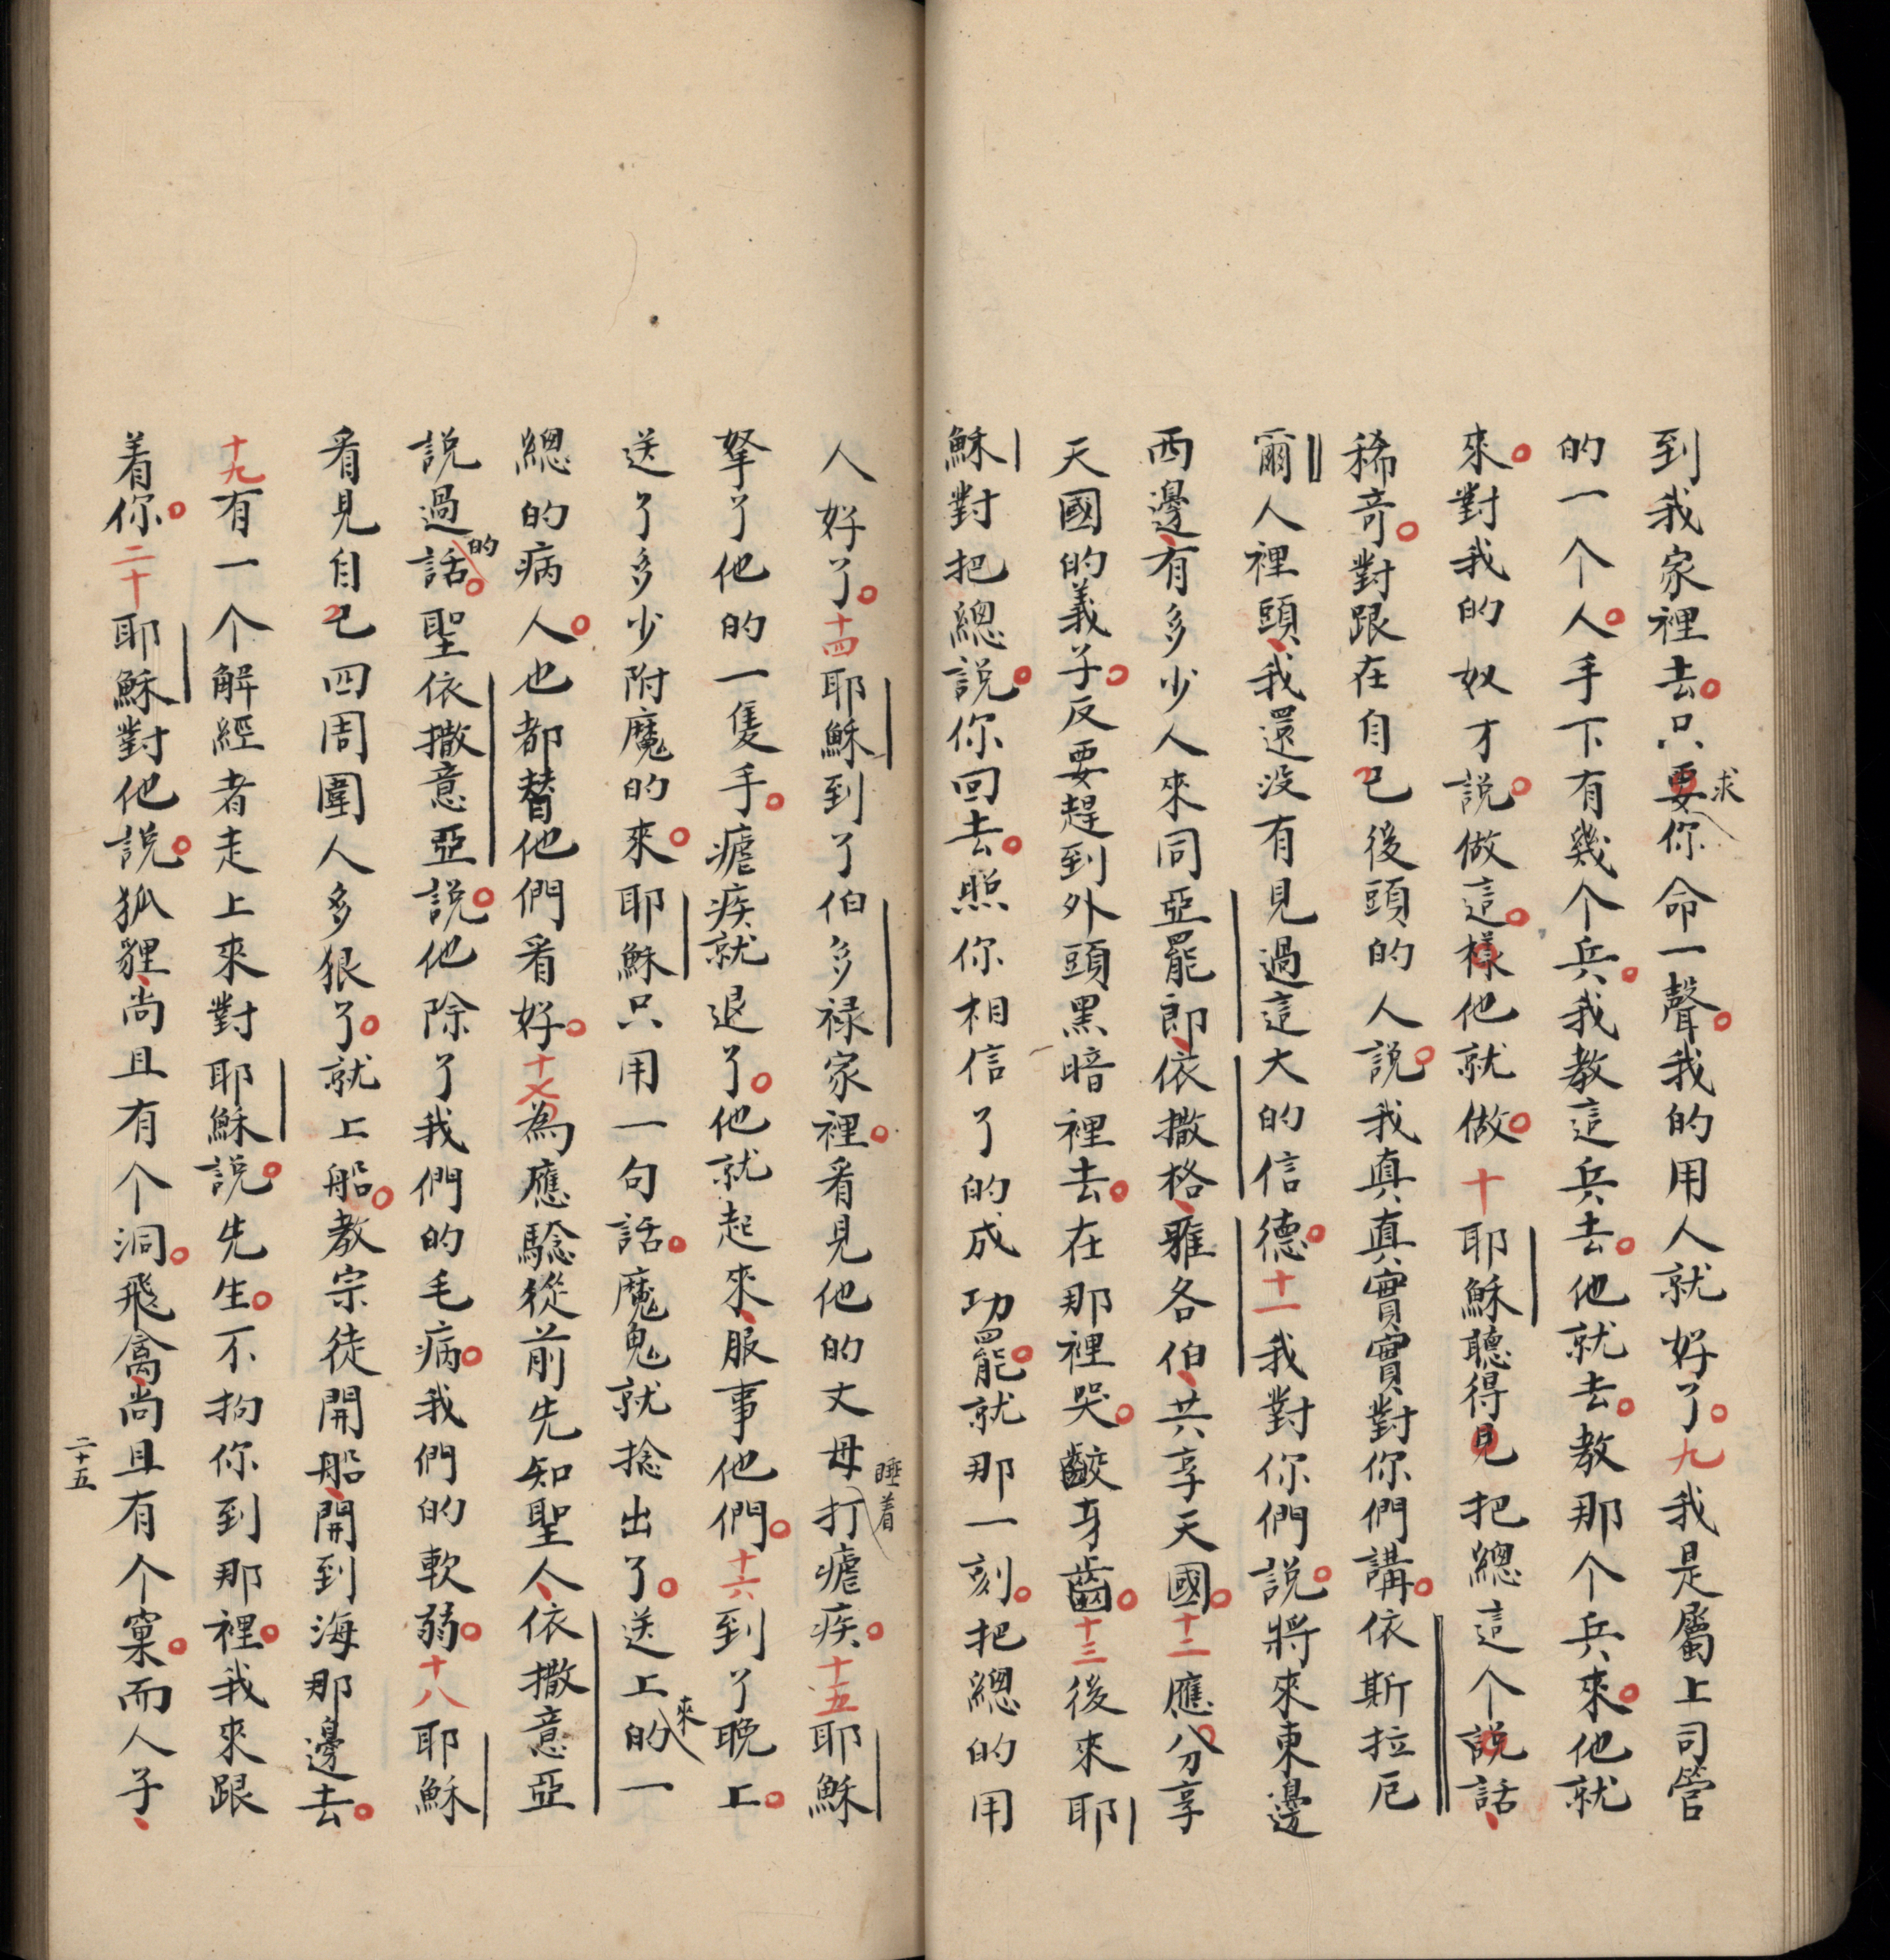 到我家裡去。只要求你命一聲。我的用人就好了。九我是屬上司管
的一个人。手下有幾个兵。我教這兵去。他就去。教那个兵來。他就
來。對我的奴才說。做這。樣他就做。十耶穌聽得見把總這个說話、
稀奇。對跟在自己後頭的人說。我真真實實對你們講。依斯拉厄
爾人裡頭、我還没有見過這大的信德。十一我對你們說。將來東邊
西邊、有多少人來同亞罷郎、依撒格、雅各伯、共享天國。十二應分享
天國的義子。反要趕到外頭黑暗裡去。在那裡哭。齩牙齒。十三後來耶
穌對把總說。你回去。照你相信了的成功罷。就那一刻。把總的用
人好了。十四耶穌到了伯多禄家裡。看見他的丈母睡着打瘧疾。十五耶穌
拏了他的一隻手。瘧疾就退了。他就起來、服事他們。十六到了晚上。
送了多少附魔的來。耶穌只用一句話。魔鬼就捻出了。送上來的一
總的病人。也都替他們看好。十七為應騐從前先知聖人、依撒意亞
說過的話。聖依撒意亞說。他除了我們的毛病。我們的軟弱。十八耶穌
看見自己四周圍人多狠了。就上船。教宗徒開船、開到海那邊去。
十九有一个解經者走上來對耶穌說。先生。不拘你到那裡。我來跟
着你。二十耶穌對他說。狐貍、尚且有个洞。飛禽、尚且有个窠。而人子、
二十五